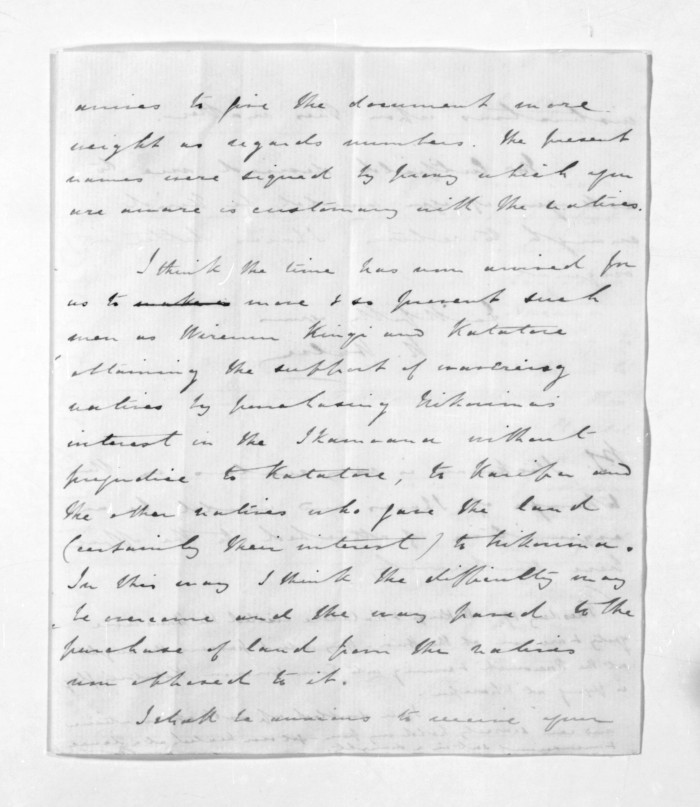 arrives to give the document more
weight as regards numbers. The present
names were signed by proxy which you
are aware is customary with the natives.
I think the time has now arrived for
us to move & so prevent such
men as Wiremu Kingi and Katatore
obtaining the support of wavering
natives by purchasing Nikorima's
interest in the Ikamoana without
prejudice to Katatore, to Karipa and
the other natives who gave the land
(certainly their interest) to Nikorima.
In this way I think the difficulty may
be overcome and the way paved to the
purchase of land from the natives
now opposed to it.
I shall be anxious to receive your